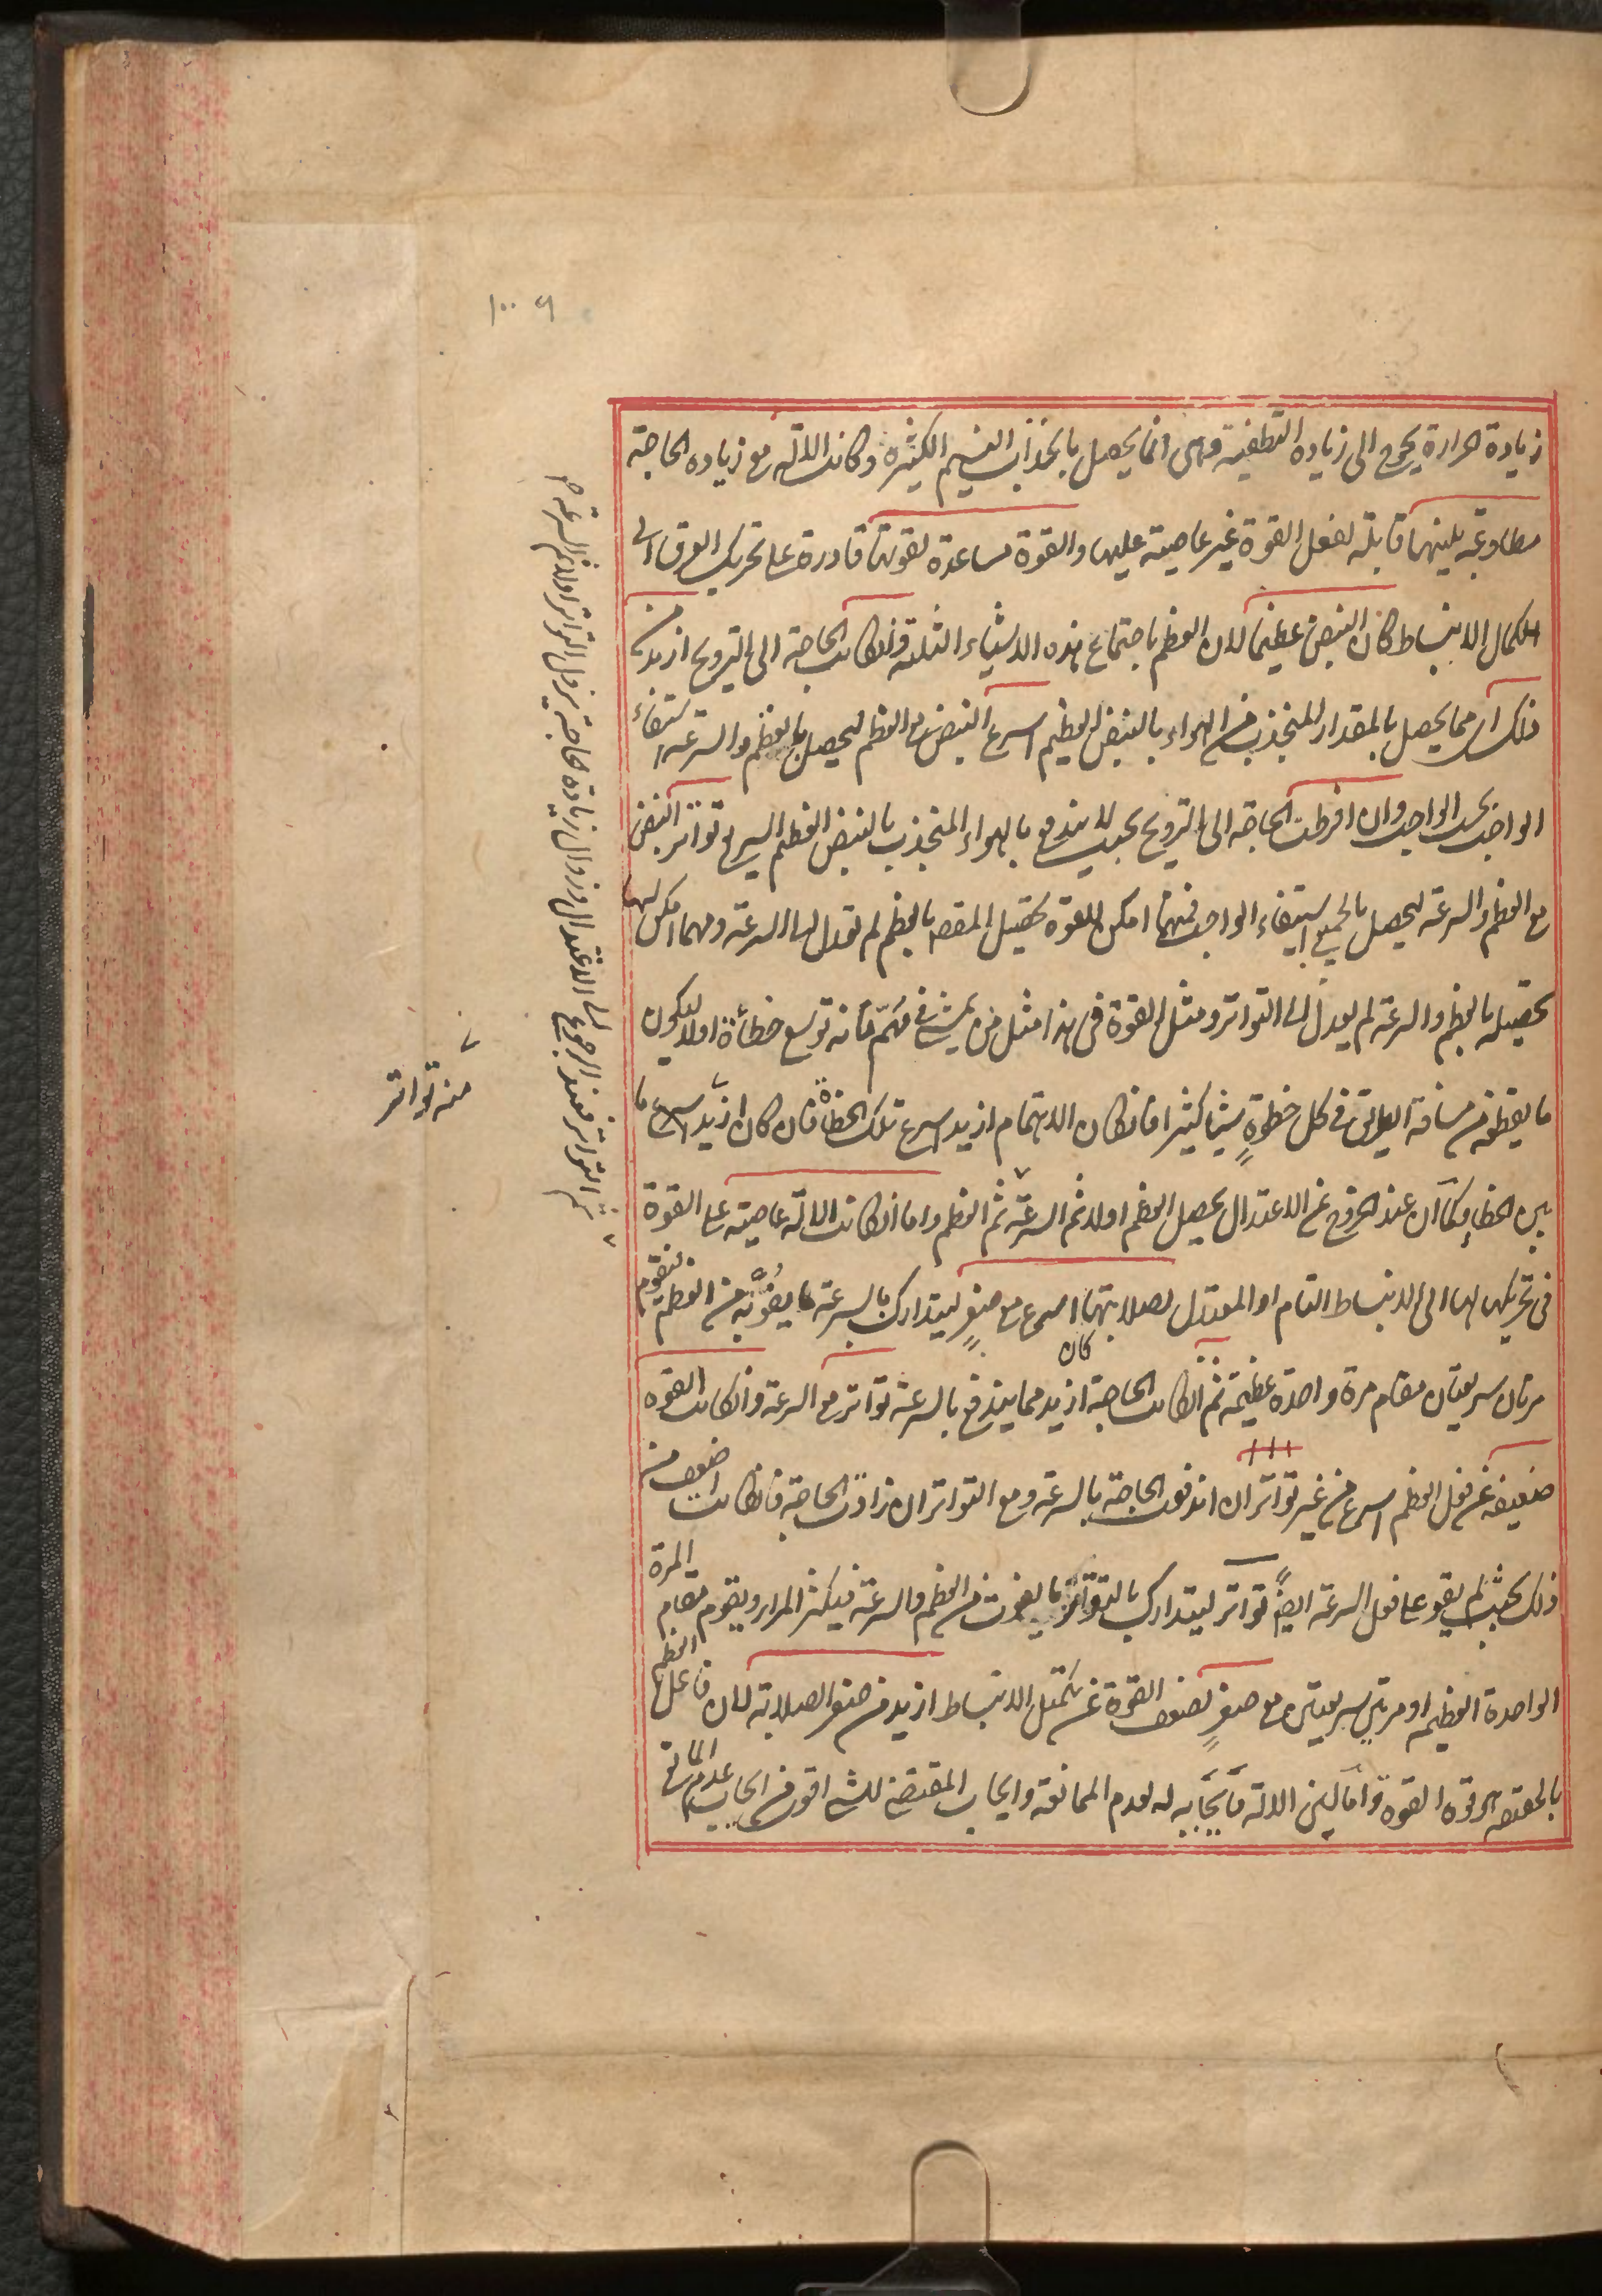 زيادة الحرارة يحوج الى زيادة التطفية وهى انما يحصل بانجذاب النسيم الكثيرة وكانت الالة مع زيادة الحاجة
مطاوعة بلينها قابلة لفعل القوة غير عاصية عليها والقوة مساعدة لقوتها قادرة على تحريك العرق الى
الكمال الانبساط كان النبض عظيما لان العظم باجتماع هذه الاشياء الثلثة فان كانت الحاجة الى الترويح ازيد من
ذلك اى مما يحصل بالمقدار المنجذب من الهواء بالنبض العظيم اسرع النبض مع العظم ليحصل بالعظم والسرعة استيفاء
الواجب وان افرطت الحاجة الى الترويح بحيث لا يندفع بالهواء المنجذب بالنبض العظيم السريع تواتر النبض
مع العظم والسرعة ليحصل بالجميع استيفاء الواجب فمهما امكن للقوة تحصيل المقصد بالعظم لم تعدل الى السرعة ومهما امكن لها
تحصيله بالعظم والسرعة لم يعدل الى التواتر ومثل القوة فى هذا مثل من يمشى فى مهم فانه توسع خطاه اولا ليكون
ما يقطعه من مسافة الطريق فى كل خطوة شيئا كثيرا فان كان الاهتمام ازيد اسرع تلك الخطاة فان كان ازيد اسرع ما
بين الخطا وكما ان عند الخروج عن الاعتدال يحصل العظم اولا ثم السرعة ثم العظم واما ان كانت الالة عاصية على القوة
فى تحريكها لها الى الانبساط التام او المعتدل لصلابتها اسرع مع صغر ليتدارك بالسرعة ما يفوته من العظم فتقوم
كان
مرتان سريعتان مقام مرة واحدة عظيمة ثم ان كانت الحاجة ازيد مما يندفع بالسرعة تواتر مع السرعة وان كانت القوة
ضعيفة عن فعل العظم اسرع من غير تواتر ان اندفعت الحاجة بالسرعة ومع التواتر ان زادت الحاجة فان كانت اضعف من
ذلك بحيث لم يقو على فعل السرعة ايضا تواتر ليتدارك بالتواتر ما يفوت من العظم والسرعة فيكثر المرار ويقوم مقام المرة
الواحدة العظيمة او مرتين سريعتين مع صغر لضعف القوة عن تكميل الانبساط ازيد من صغر الصلابة لان فاعل العظم
بالحقيقة هو قوة القوة واما لين الالة فايجابه له لعدم الممانعة وايجاب المقتضى للشئ اقوى من ايجاب عدم المانع
منه تواتر